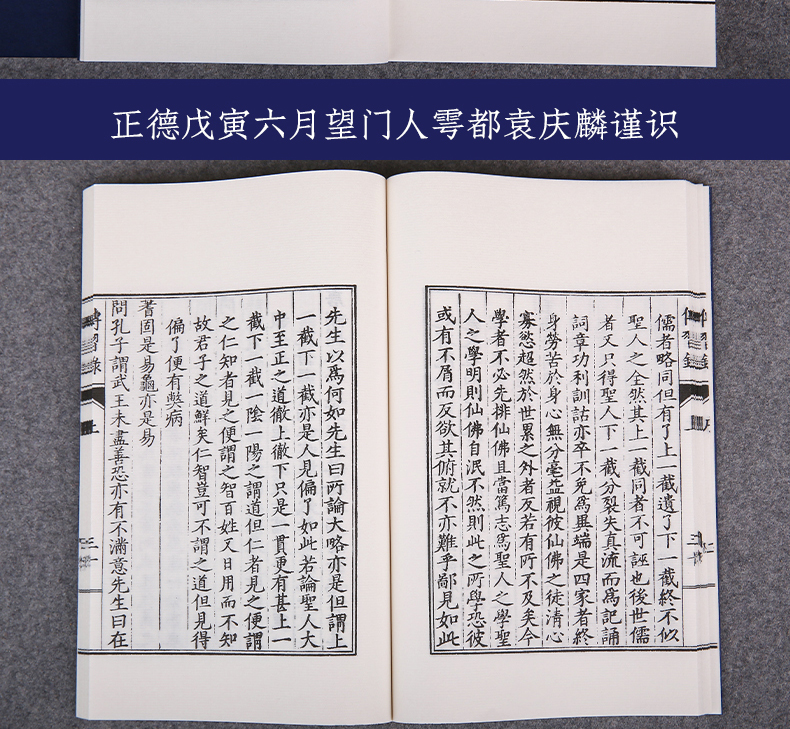 正德戊寅六月望门人雩都袁庆麟谨识
儒者略同但有了上一截遺了下一截終不似
聖人之全然其上一截同者不可誣也後世儒
者又只得聖人下一截分裂失真流而爲記誦
詞章功利訓詁亦卒不免爲異端是四家者終
身勞苦於身心無分毫益視彼仙佛之徒清心
寡慾超然於世累之外者反若有所不及矣今
學者不必先排仙佛且當篤志爲聖人之學聖
人之學明則仙佛自泯不然則此之所學恐彼
或有不屑而反欲其俯就不亦難乎鄙見如此
先生以爲何如先生曰所論大略亦是但謂上
一截下一截亦是人見偏了如此若論聖人大
中至正之道徹上徹下只是一貫更有甚上一
截下一截一陰一陽之謂道但仁者見之便謂
之仁知者見之便謂之智百姓又日用而不知
故君子之道鮮矣仁智豈可不謂之道但見得
偏了便有獘病
蓍固是易龜亦是易
問孔子謂武王未盡善恐亦有不滿意先生曰在
傳習錄
上